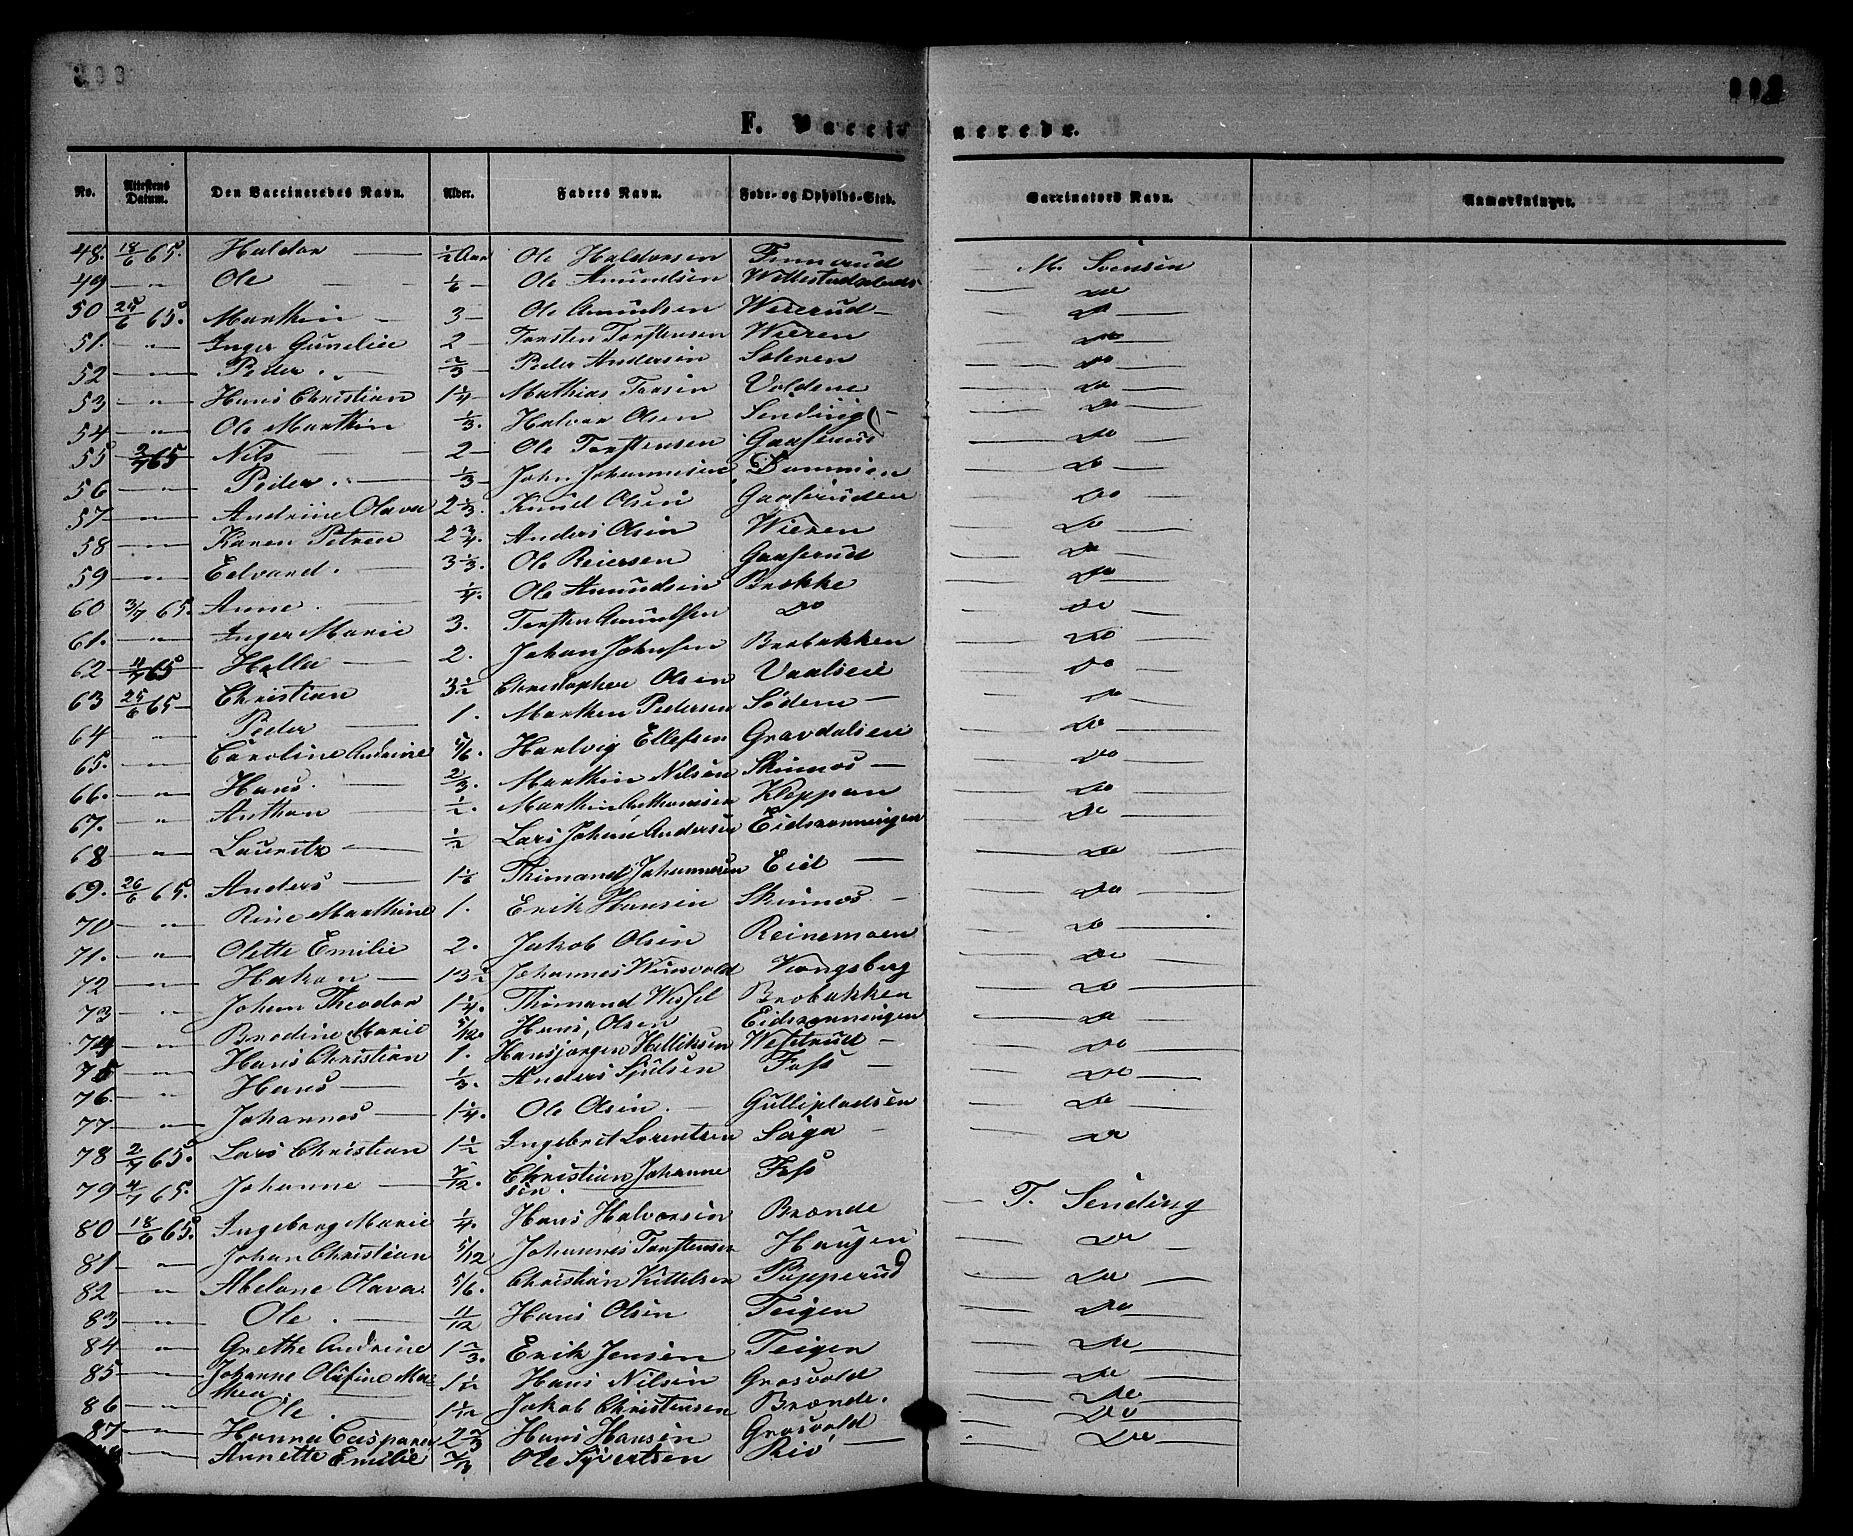 F. Vaccinerede.
No. Attestens Datum. Den Vaccineredes Navn. Alder. Faders Navn. Føde- og Opholds-Sted. Vaccinators Navn. Anmærkninger.
48. 18/6 65. Haldor — 1/2 Aar Ole Haldorsen — M. Svensen
49 — " — Ole — 1/6 — Ole Amundsen — do —
50 25/6 65. Marthin — 3 — Ole Amundsen — do —
51. — " — Inger Gunelie 2 — Torsten Torstensen Wieren — do —
52 — " — Peder. " — 2/3 — Peder Andersen — do —
53 — " — Hans Christian 1 1/4 — Mathias Torsen Voldene — do —
54 — " — Ole Marthin 1/3. Halvor Olsen Sending — — do —
55 2/7 65 Nils — 2 — Ole Torstensen Gaaserud — do —
56 — " — Peder. " — 1/3 — John Johannesen Dammen — do —
57 — " — Andrine Olava 2 1/3. Knud Olsen Gaaseruden — do —
58 — " — Karen Petren 2 3/4. Anders Olsen Wieren — do —
59 — " — Edvard. — 3 1/3. Ole Reiersen Gaaserud — do —
60 3/7 65. Anne. — 1/4. Ole Amundsen Brække — do —
61. — " — Inger Marie 3. Torsten Amundsen Do — do —
62 4/7 65 Hella — 2. Johan Johnsen Brobakken — do —
63 25/6 65 Christian 3 1/2 Christopher Olsen — do —
64 — " — Peder — 1. Marthen Pedersen Södene — — do —
65. — " — Caroline Andrine 5/6. Hartvig Ellefsen Gravdalseie — do —
66. — " — Hans. — 2/3. Marthin Nilsen Skinnos — — do —
67. — " — Anthon — 1/2. Marthin Kleppan — do —
68 — " — Lauritz — 1/2 Lars Johan Andersen Eidsrønningen — do —
69. 26/6 65. Anders — 1 1/6 Thimand Johannesen Eid — — do —
70 — " — Rine Marthine 1. Erik Hansen Skinnos — — do —
71. — " — Olette Emilie 2. Jakob Olsen Reinemoen — do —
72 — " — Hakon — 13 1/2 Johannes Kongsberg — do —
73 — " — Johan Theodor 1 1/4. Thimand Wessel Brobakken — do —
74 — " — Brodine Marie 5/12. Hans, Olsen Eidsrønningen — do —
75 — " — Hans Christian 1. Hansjørgen Helliksen — do —
76. — " — Hans — 1/3. Anders Foss — — do —
77 — " — Johannes — 1 1/4. Ole Olsen. — Gullipladsen — do —
78 2/7 65. Lars Christian 1 1/2 Ingebret Lorentsen Saga — — do —
79 4/7 65. Johanne — 7/12. Christian Johannesen. Foss — T. Sending
80 — 18/6 65. Ingeborg Marie 1/4. Hans Halvorsen Brænde — do —
81 — " — Johan Christian 5/12 Johannes Torstensen Haugen — do —
82 — " — Abelone Olava 5/6. Christian Kittelsen Papperud — do —
83 — " — Ole. — 11/12 Hans Olsen Teigen — do —
84 — " — Grethe Andrine 1 2/3. Erik Jensen Teigen — do —
85 — " — Johanne Olufine Mathea 1 1/12 Hans Nilsen Grosvold — do —
86 — " — Ole. — 1 1/12 Jakob Christensen Brænde. — do —
87 — " — Hanna Caspara 2 2/3 Hans Hansen Grosvold — Do —
— " — Annette Emilie Ole Syvertsen — Do —